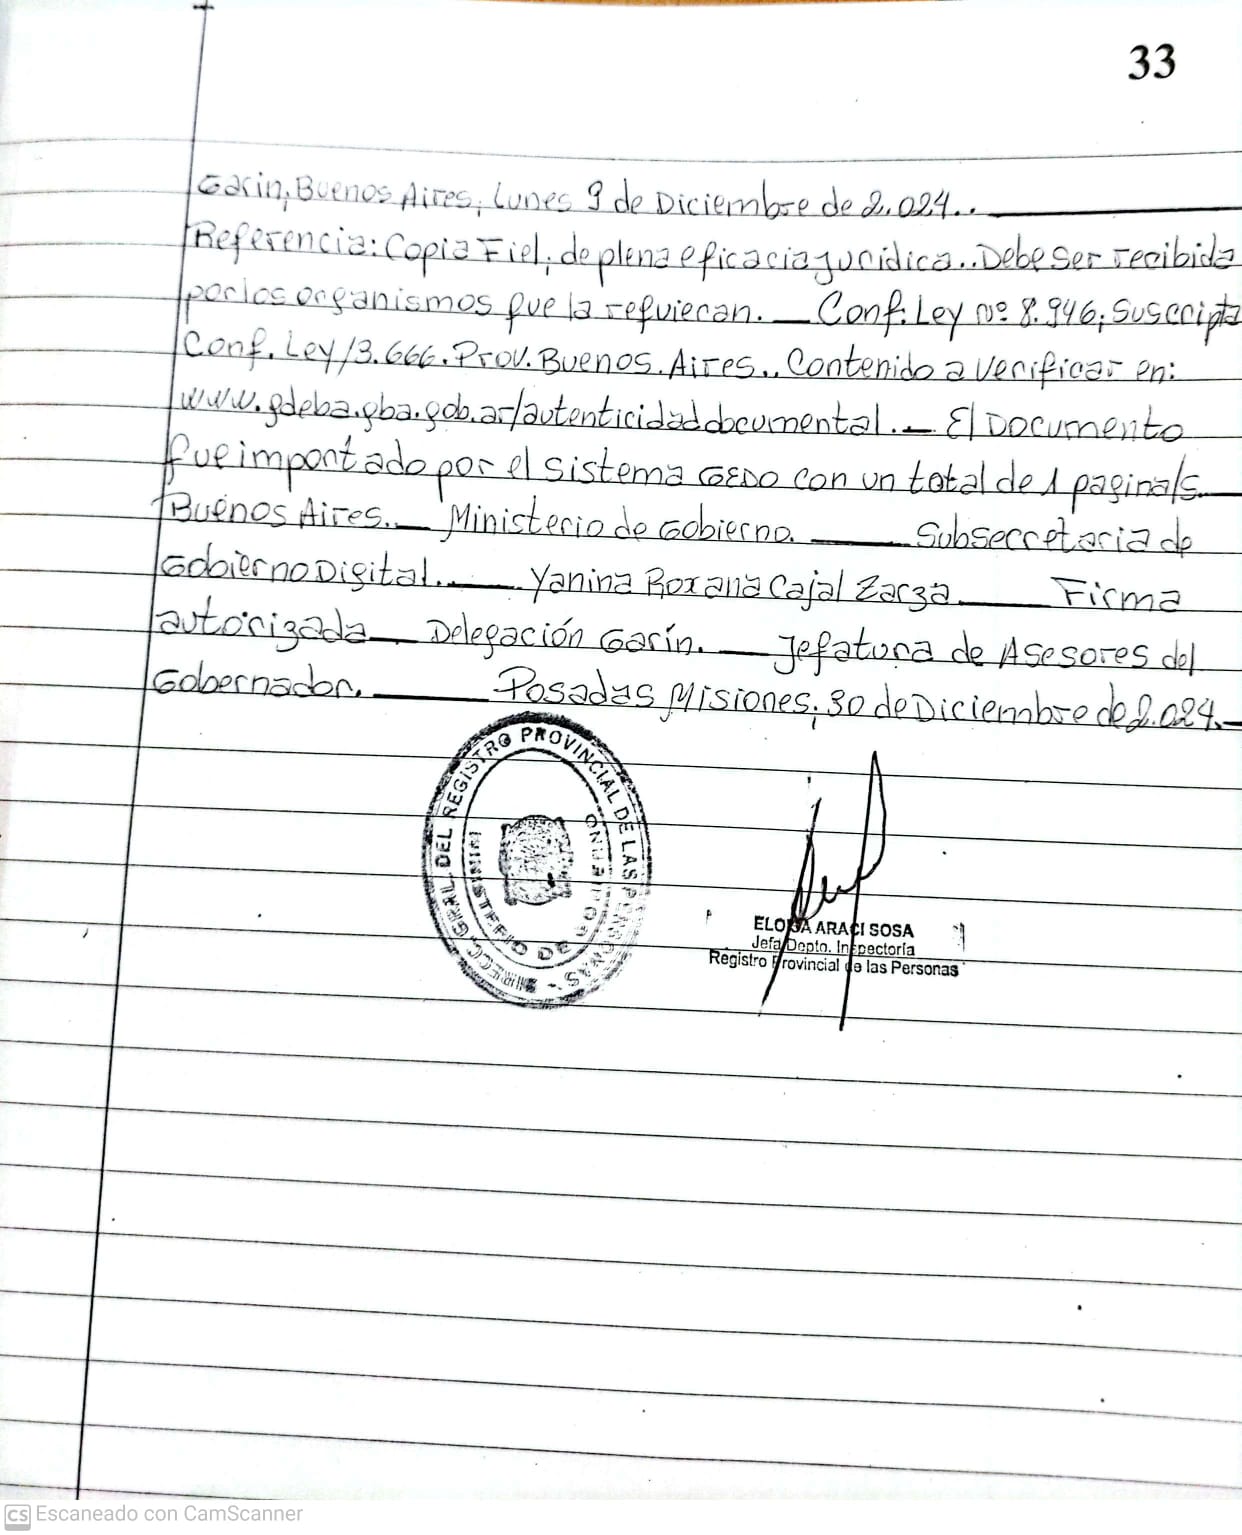 33
Garin, Buenos Aires, Lunes 9 de Diciembre de 2.024..
Referencia: Copia Fiel, de plena eficacia juridica.. Debe ser recibida
por los organismos que la requieran. Conf. Ley nº 8.946, Suscripta
Conf. Ley 13.666. Prov. Buenos. Aires.. Contenido a verificar en:
www.gdeba.gba.gob.ar/autenticidaddocumental. El Documento
fue importado por el sistema GEDO con un total de 1 pagina/s.
Buenos Aires. Ministerio de Gobierno. Subsecretaria de
Gobierno Digital. Yanina Roxana Cajal Zarza Firma
autorizada Delegación Garín. Jefatura de Asesores del
Gobernador. Posadas Misiones, 30 de Diciembre de 2.024.
DIRECC. GRAL. DEL REGISTRO PROVINCIAL DE LAS PERSONAS
MINISTERIO DE GOBIERNO
ARACI SOSA
Jefa Depto. Inspectoría
Registro Provincial de las Personas
CS Escaneado con CamScanner